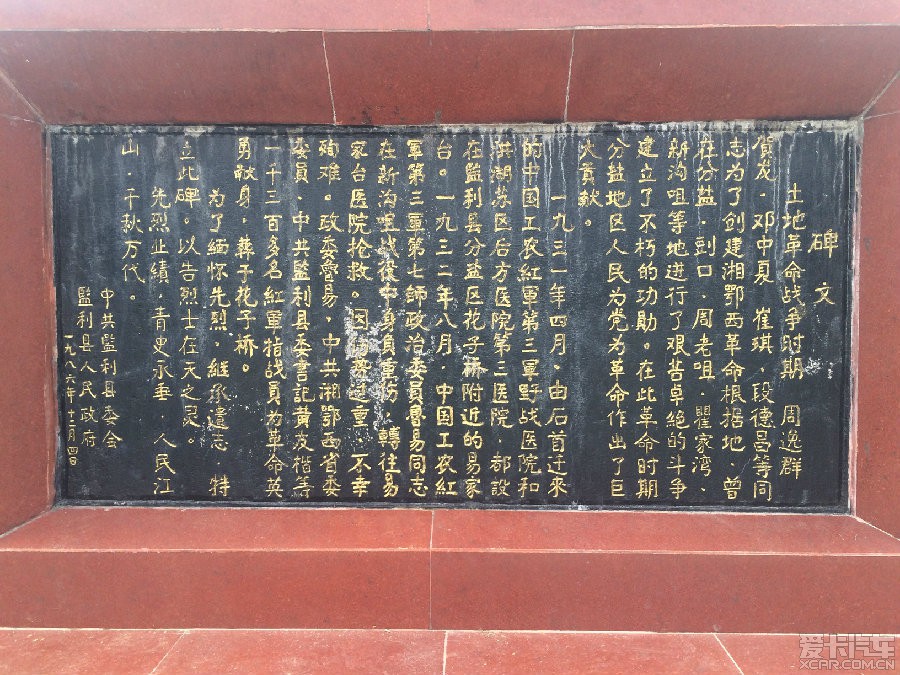 碑文
土地革命战争时期 周逸群
贺龙、邓中夏 崔琪、段德昌等同
志为了创建湘鄂西革命根据地、曾
在分盐、剅口、周老咀、瞿家湾、
新沟咀等地进行了艰苦卓绝的斗争
建立了不朽的功勋。在此革命时期
分盐地区人民为党为革命作出了巨
大贡献。
一九三一年四月、由石首迁来
的中国工农红軍第三軍野战医院和
洪湖苏区后方医院第三医院、都设
在监利县分盐区花子桥附近的易家
台。一九三二年八月、中国工农紅
軍第三軍第七師政治委員魯易同志
在新沟咀战役中身負重伤、轉往易
家台医院抢救。因伤势过重、不幸
殉难。政委魯易、中共湘鄂西省委
委員、中共監利县委書記黄友楷等
一千三百多名紅軍指战員为革命英
勇献身，葬于花子桥。
为了緬怀先烈，継承遺志、特
立此碑。以告烈士在天之灵。
先烈业績，青史永垂、人民江
山、千秋万代。
中共監利县委会
監利县人民政府
一九八六年十二月
爱卡汽车
XCAR.COM.CN